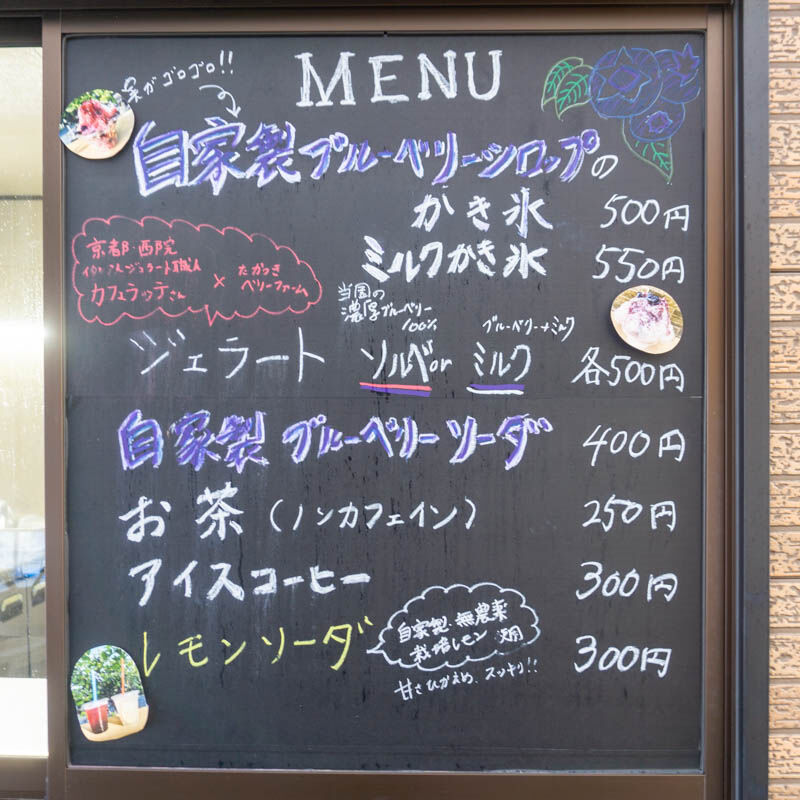 MENU
実がゴロゴロ!!
自家製ブルーベリーシロップの
かき氷 500円
ミルクかき氷 550円
京都・西院
イタリアンジェラート職人
カフェラッテさん
×
たかつき
ベリーファーム
当園の
濃厚ブルーベリー
100%
ブルーベリー+ミルク
ジェラート ソルベor ミルク 各500円
自家製 ブルーベリーソーダ 400円
お茶(ノンカフェイン) 250円
アイスコーヒー 300円
レモンソーダ 300円
自家製・無農薬
栽培レモン使用
甘さひかえめ、スッキリ!!